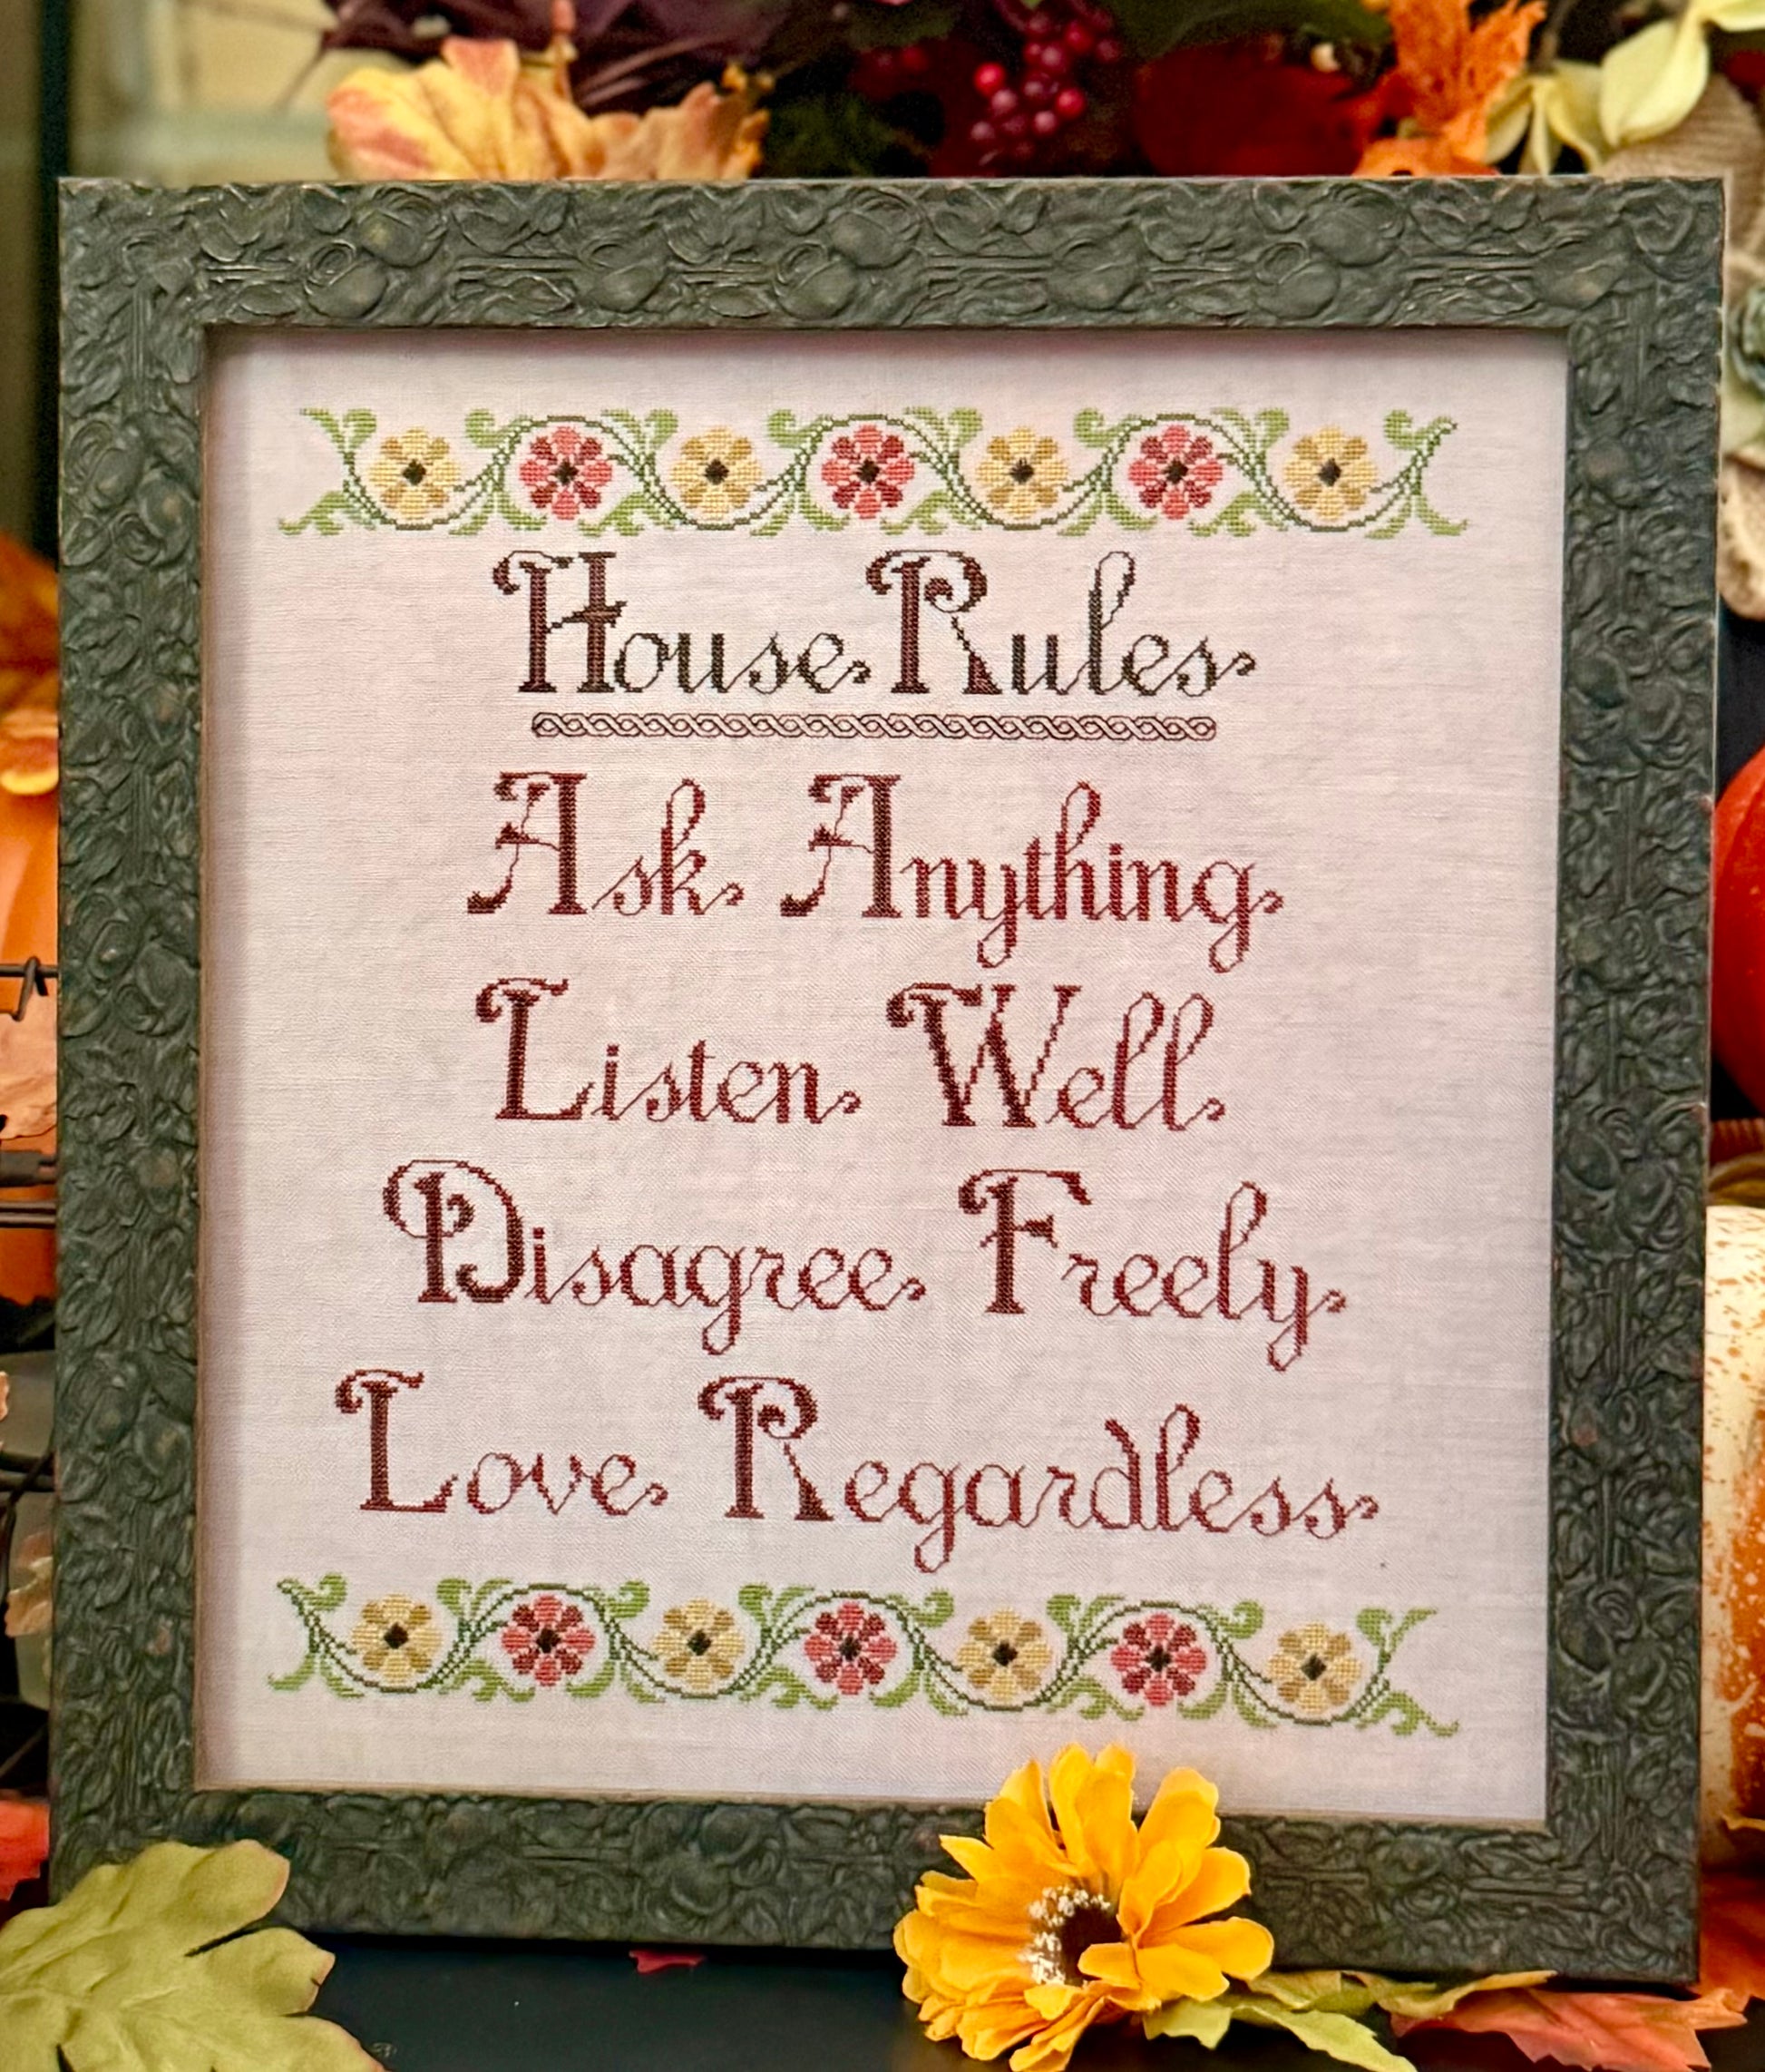 House Rules
Ask Anything
Listen Well
Disagree Freely
Love Regardless